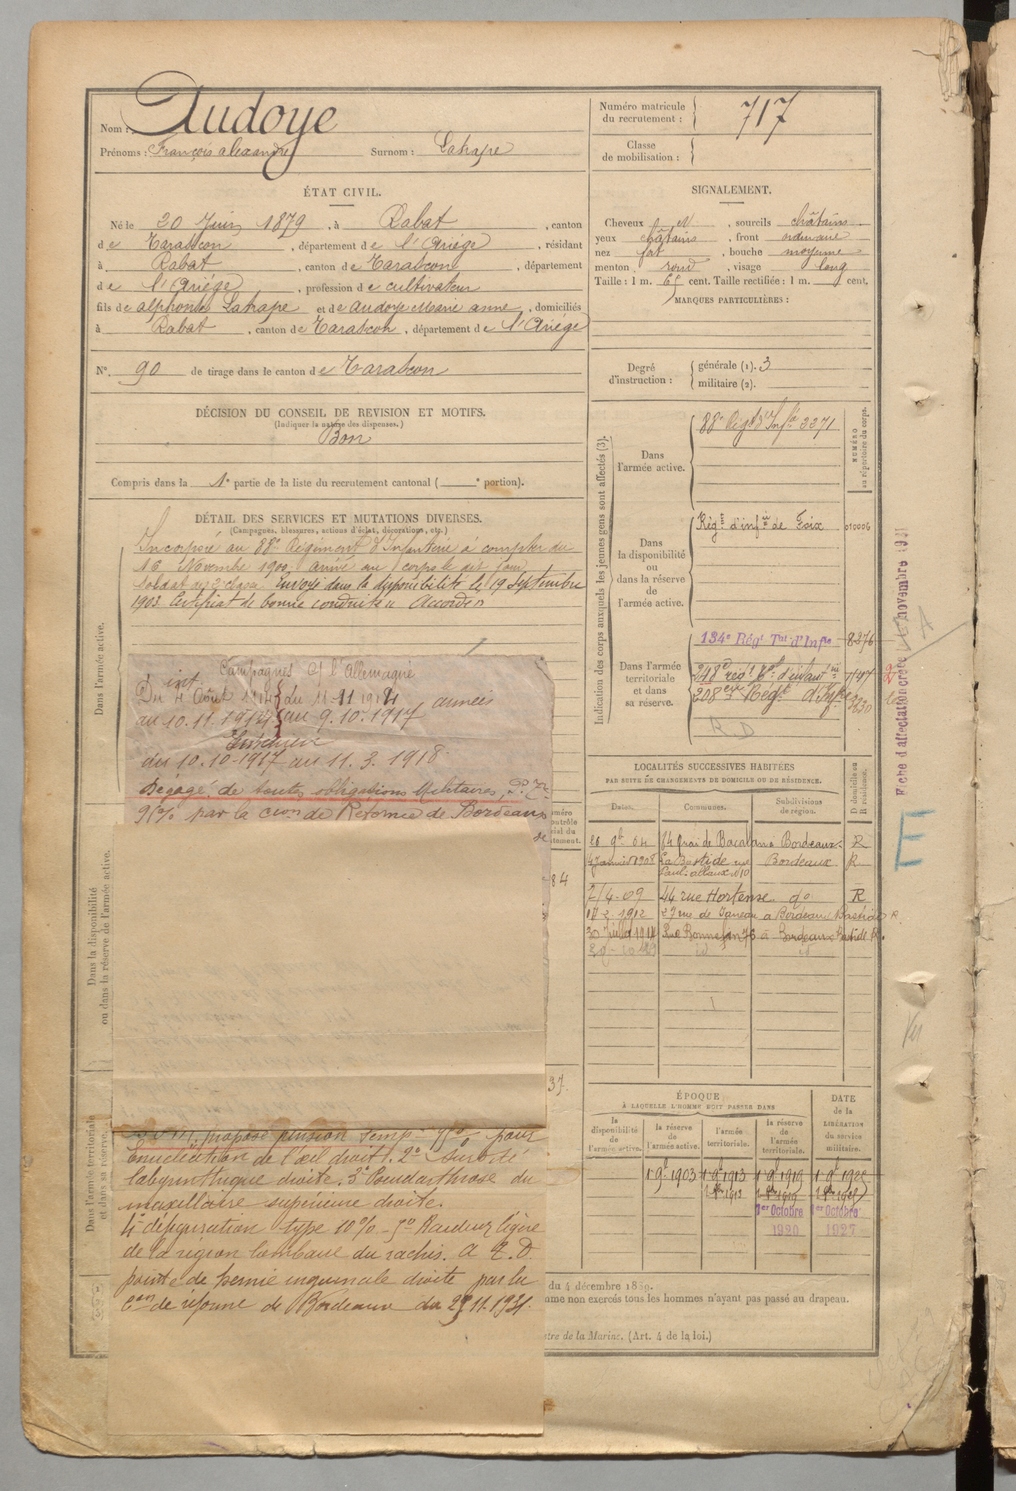 Nom : Audoye
Prénoms : François alexandre Surnom : Lahape
Numéro matricule du recrutement : 717
Classe de mobilisation :
ÉTAT CIVIL.
Né le 20 Juin 1879, à Rabat, canton
de Tarascon, département de l'Ariège, résidant
à Rabat, canton de Tarascon, département
de l'Ariège, profession de cultivateur
fils de alphonse Lahape et de Audoye Marie anne, domiciliés
à Rabat, canton de Tarascon, département de l'Ariège
N° 90 de tirage dans le canton de Tarascon
SIGNALEMENT.
Cheveux N, sourcils châtains
yeux châtains, front ordinaire
nez fort, bouche moyenne
menton rond, visage long
Taille : 1 m. 65 cent. Taille rectifiée : 1 m. cent.
MARQUES PARTICULIÈRES :
Degré d'instruction : générale (1). 3
militaire (2).
DÉCISION DU CONSEIL DE REVISION ET MOTIFS.
(Indiquer la nature des dispenses.)
Bon
Compris dans la 1e partie de la liste du recrutement cantonal ( e portion).
DÉTAIL DES SERVICES ET MUTATIONS DIVERSES.
(Campagnes, blessures, actions d'éclat, décorations, etc.)
Dans l'armée active.
Incorporé au 88e Régiment d'Infanterie à compter du
16 Novembre 1900, arrivé au corps le dit jour
soldat de 2e classe. Envoyé dans la disponibilité le 19 Septembre
1903. Certificat de bonne conduite « Accordé »
Campagnes ct l'Allemagne
Du 4 Août 1914 du 11-11 1914 armées
au 10.11.1914 au 9.10.1917
Intérieur
du 10.10-1917 au 11.3.1918
Dégagé de toutes obligations Militaires,
par la con de Réforme de Bordeaux
Dans la disponibilité ou dans la réserve de l'armée active.
Dans l'armée territoriale et dans sa réserve.
proposé pension temp pour
Enucléation de l'œil droit. 2° Surdité
labyrinthique droite. 3° Pseudarthrose du
maxillaire supérieure droite.
4° défiguration type 10% - 5° Raideur légère
de la région lombaire du rachis.
pointe de hernie inguinale droite par la
Con de réforme de Bordeaux du 25.11.1931.
Indication des corps auxquels les jeunes gens sont affectés (3).
NUMÉRO au répertoire du corps.
Dans l'armée active.
88e Régt d'Infie 3371
Dans la disponibilité ou dans la réserve de l'armée active.
Régt d'infie de Foix 010006
Dans l'armée territoriale et dans sa réserve.
134e Régt Tal d'Infie 8276
248e régt Tal d'infanterie 7147
208eme Régt d'Infie 3230
R.D
Fiche d'affectation créée le novembre 19
E
LOCALITÉS SUCCESSIVES HABITÉES
PAR SUITE DE CHANGEMENTS DE DOMICILE OU DE RÉSIDENCE.
Dates. Communes. Subdivisions de région. D domicile ou R résidence.
20 9b 04 84 quai de Bacalan à Bordeaux R
4 janvier 1908 La Bastide rue Paul allaux n 10 Bordeaux R
2/4-09 44 rue Hortense do R
1912 27 rue de à Bordeaux Bastide R.
30 Juillet 1914 Rue Bonnefin 76 à Bordeaux Bastide R.
id id
ÉPOQUE
À LAQUELLE L'HOMME DOIT PASSER DANS
DATE de la LIBÉRATION du service militaire.
la disponibilité de l'armée active.
la réserve de l'armée active.
l'armée territoriale.
la réserve de l'armée territoriale.
1 9b 1903 1 9b 1913 1 9b 1919
1er Octobre 1920 1er Octobre 1927
du 4 décembre 1889.
me non exercés tous les hommes n'ayant pas passé au drapeau.
stre de la Marine. (Art. 4 de la loi.)